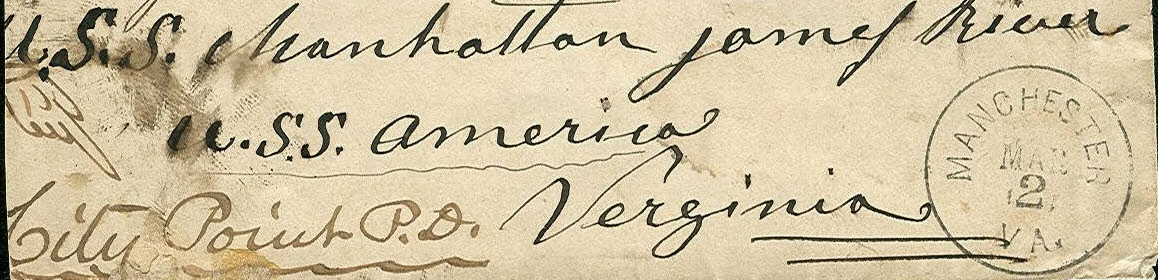 U.S.S. Manhattan James River
U.S.S. America
City Point P.O. Verginia
MANCHESTER
MAR
2
VA.